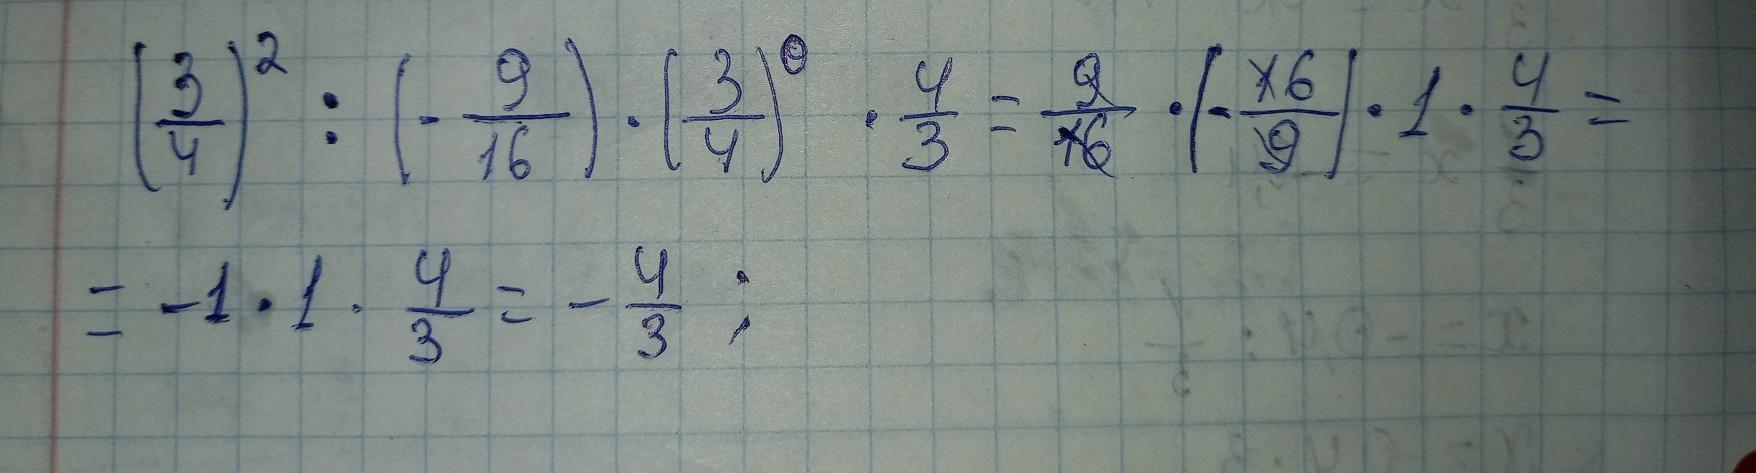 (3/4)² : (-9/16) · (3/4)⁰ · 4/3 = 9/16 · (-16/9) · 1 · 4/3 =
= -1 · 1 · 4/3 = -4/3 ;